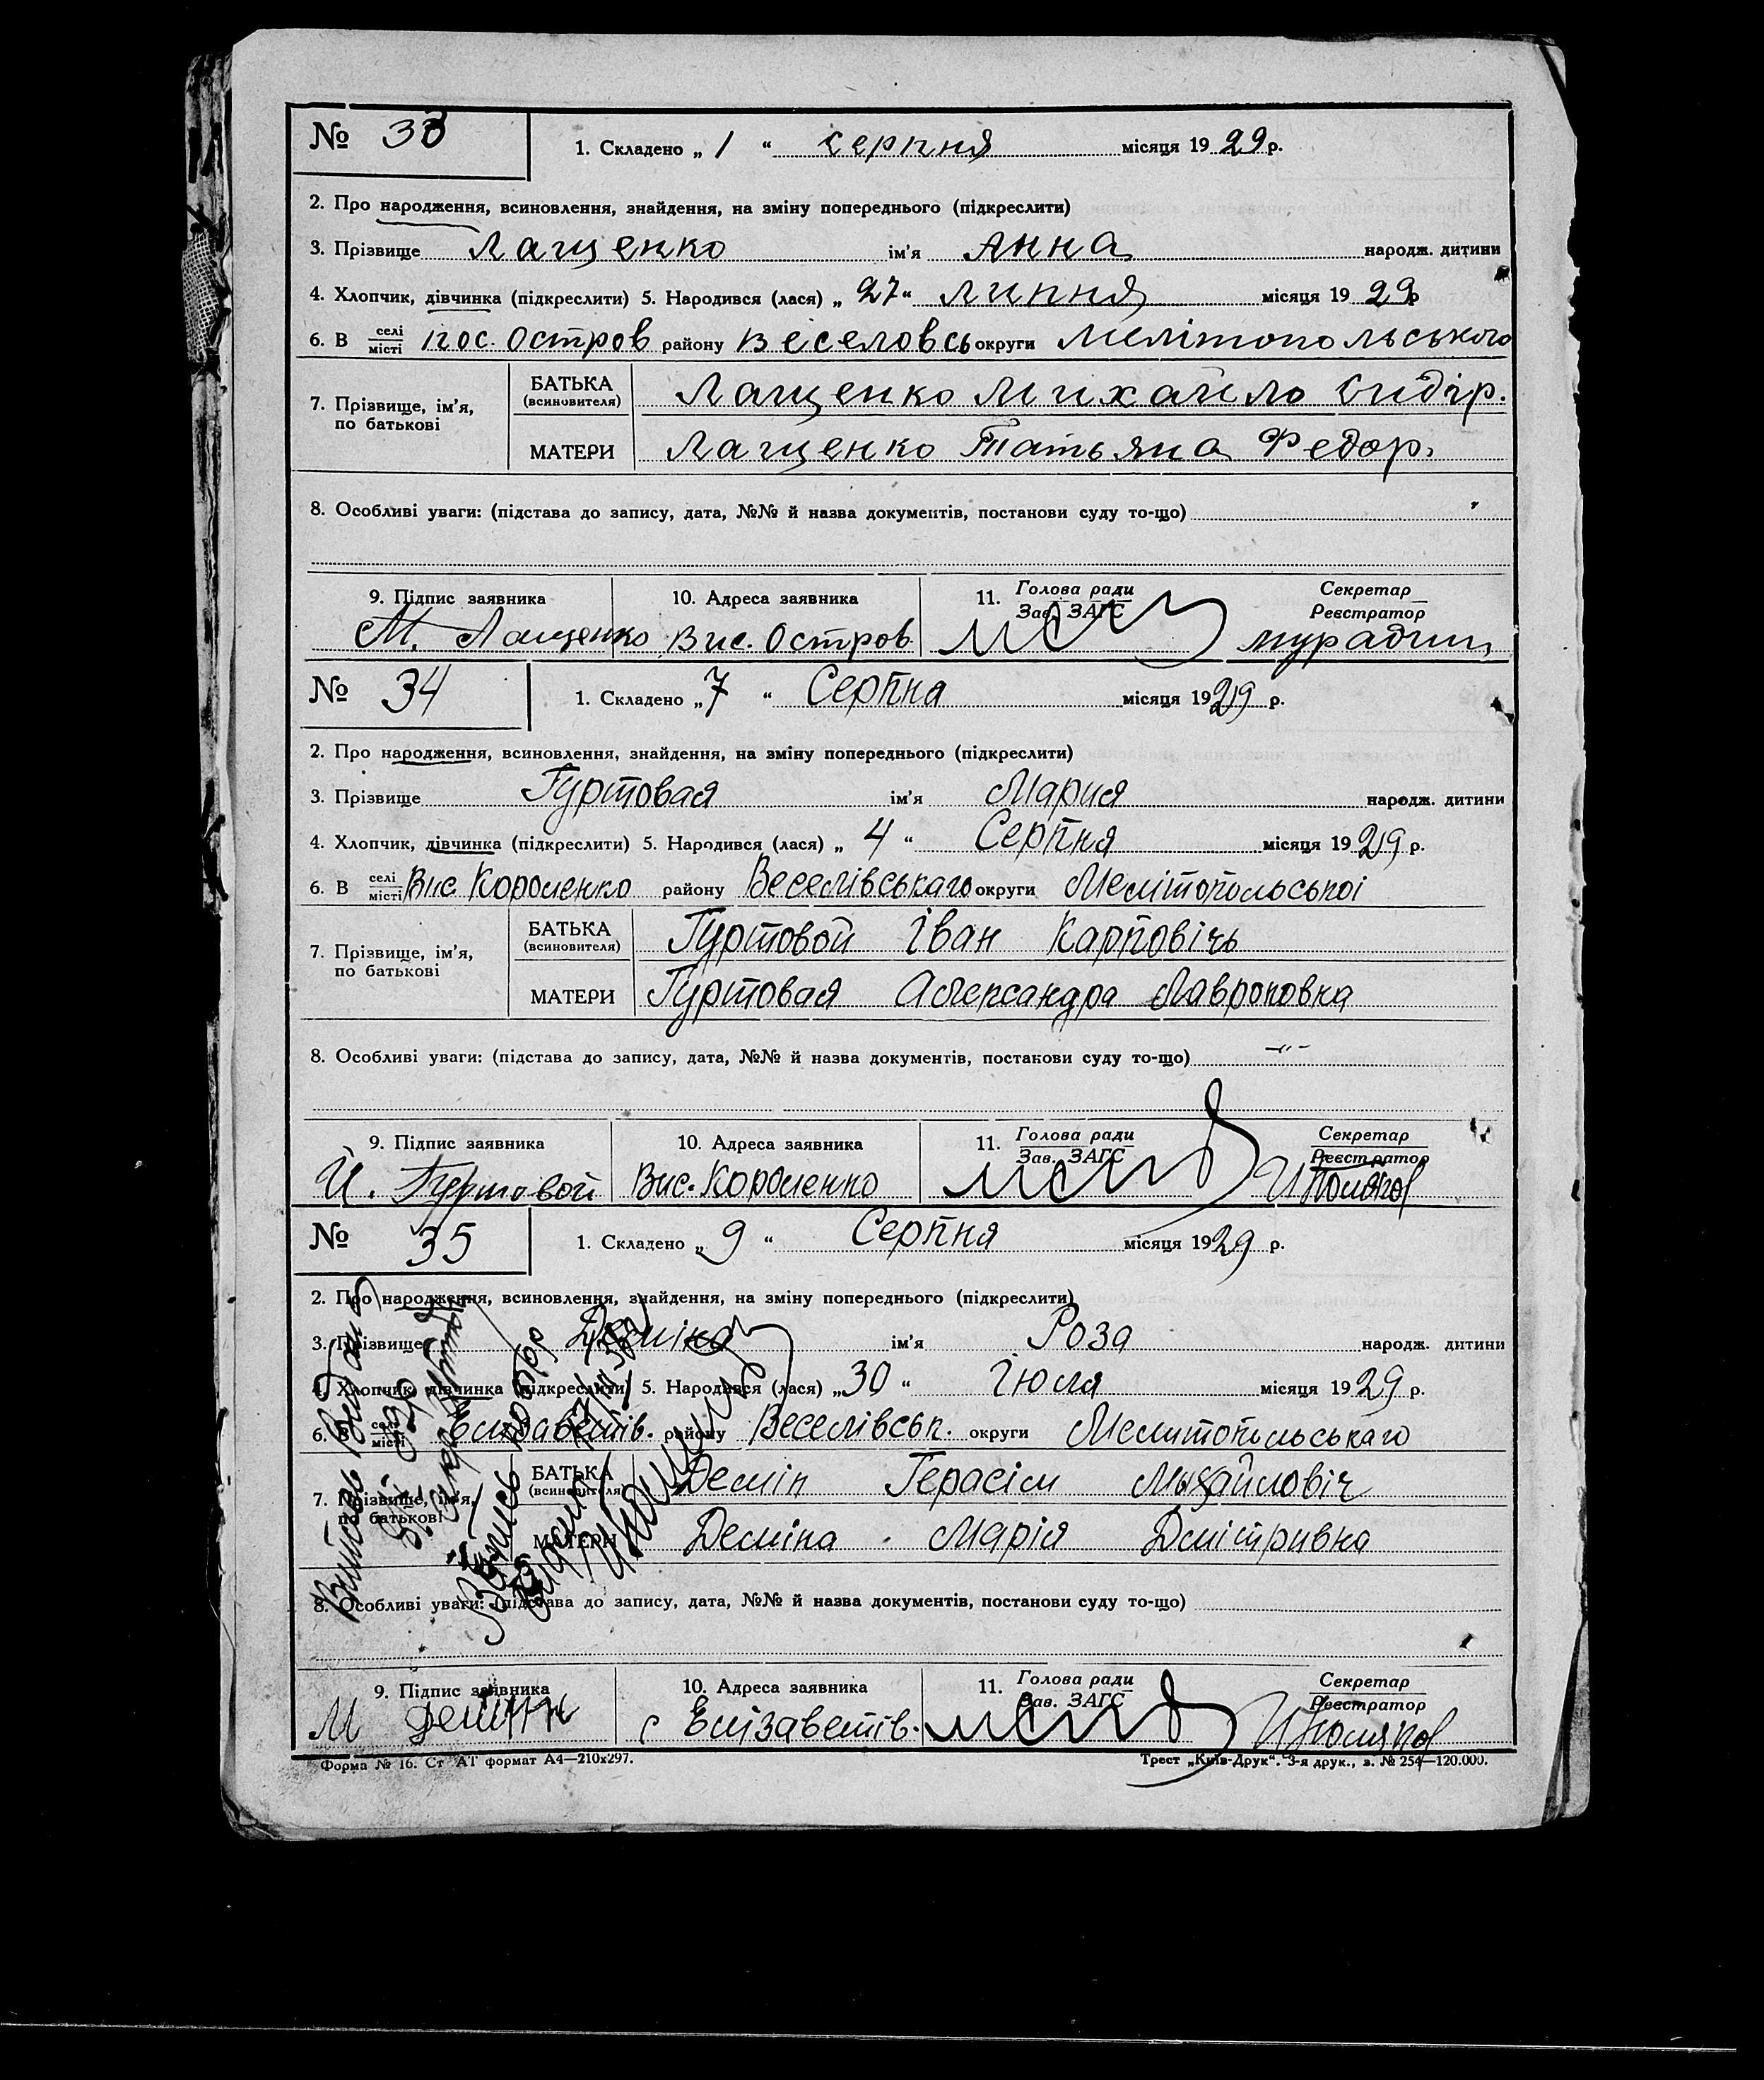 № 33 1. Складено „ 1 “ серпня місяця 1929 р.
2. Про народження, всиновлення, знайдення, на зміну попереднього (підкреслити)
3. Прізвище Лащенко ім'я Анна народж. дитини
4. Хлопчик, дівчинка (підкреслити) 5. Народився (лася) „ 27 “ липня місяця 1929 р
6. В селі місті пос. Остров району Веселовсь округи Мелітопольського
7. Прізвище, ім'я, по батькові
БАТЬКА (всиновителя) Лащенко Михайло Сидір.
МАТЕРИ Лащенко Татьяна Федор.
8. Особливі уваги: (підстава до запису, дата, №№ й назва документів, постанови суду то-що)
9. Підпис заявника 10. Адреса заявника 11. Голова ради Зав. ЗАГС Секретар Реєстратор
М. Лащенко Вис. Остров
№ 34 1. Складено „ 7 “ Серпня місяця 1929 р.
2. Про народження, всиновлення, знайдення, на зміну попереднього (підкреслити)
3. Прізвище Гуртовая ім'я Мария народж. дитини
4. Хлопчик, дівчинка (підкреслити) 5. Народився (лася) „ 4 “ Серпня місяця 1929 р.
6. В селі місті Вис. Короленко району Веселівськаго округи Мелітопольської
7. Прізвище, ім'я, по батькові
БАТЬКА (всиновителя) Гуртовой Іван Карповічь
МАТЕРИ Гуртовая Александра Лавроновка
8. Особливі уваги: (підстава до запису, дата, №№ й назва документів, постанови суду то-що)
9. Підпис заявника 10. Адреса заявника 11. Голова ради Зав. ЗАГС Секретар Реєстратор
И. Гуртовой Вис. Короленко ИПоляков
№ 35 1. Складено „ 9 “ Серпня місяця 1929 р.
2. Про народження, всиновлення, знайдення, на зміну попереднього (підкреслити)
3. Прізвище Деміна ім'я Роза народж. дитини
4. Хлопчик, дівчинка (підкреслити) 5. Народився (лася) „ 30 “ Іюля місяця 1929 р.
6. В селі місті Єлизаветів. району Веселівськ. округи Мелитопольськаго
7. Прізвище, ім'я, по батькові
БАТЬКА (всиновителя) Демін Герасім Михайловіч
МАТЕРИ Деміна Марія Дмітривна
8. Особливі уваги: (підстава до запису, дата, №№ й назва документів, постанови суду то-що)
9. Підпис заявника 10. Адреса заявника 11. Голова ради Зав. ЗАГС Секретар Реєстратор
М Демин с Елізаветів. ИПоляков
Форма № 16. Ст АТ формат А4—210х297. Трест „Київ-Друк“. 3-я друк., з. № 254—120.000.